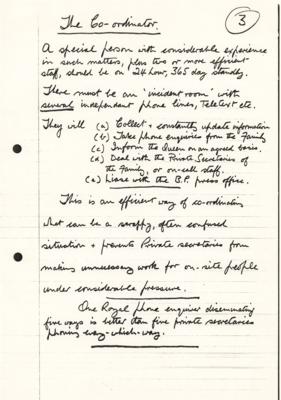 3
The Co-ordinator.
A special person with considerable experience
in such matters, plus two or more efficient
staff, should be on 24 hour, 365 day standby.
There must be an 'incident room' with
several independent phone lines, Teletext etc.
They will (a) Collect + constantly update information
(b) Take phone enquiries from the Family
(c) Inform the Queen on an agreed basis.
(d) Deal with the Private Secretaries of
the Family, or on-call staff.
(e) Liase with the B.P. press office.
This is an efficient way of co-ordinating
what can be a scrappy, often confused
situation + prevents Private secretaries from
making unnecessary work for on-site people
under considerable pressure.
One Royal phone enquirer disseminating
five ways is better than five private secretaries
phoning every-which-way.